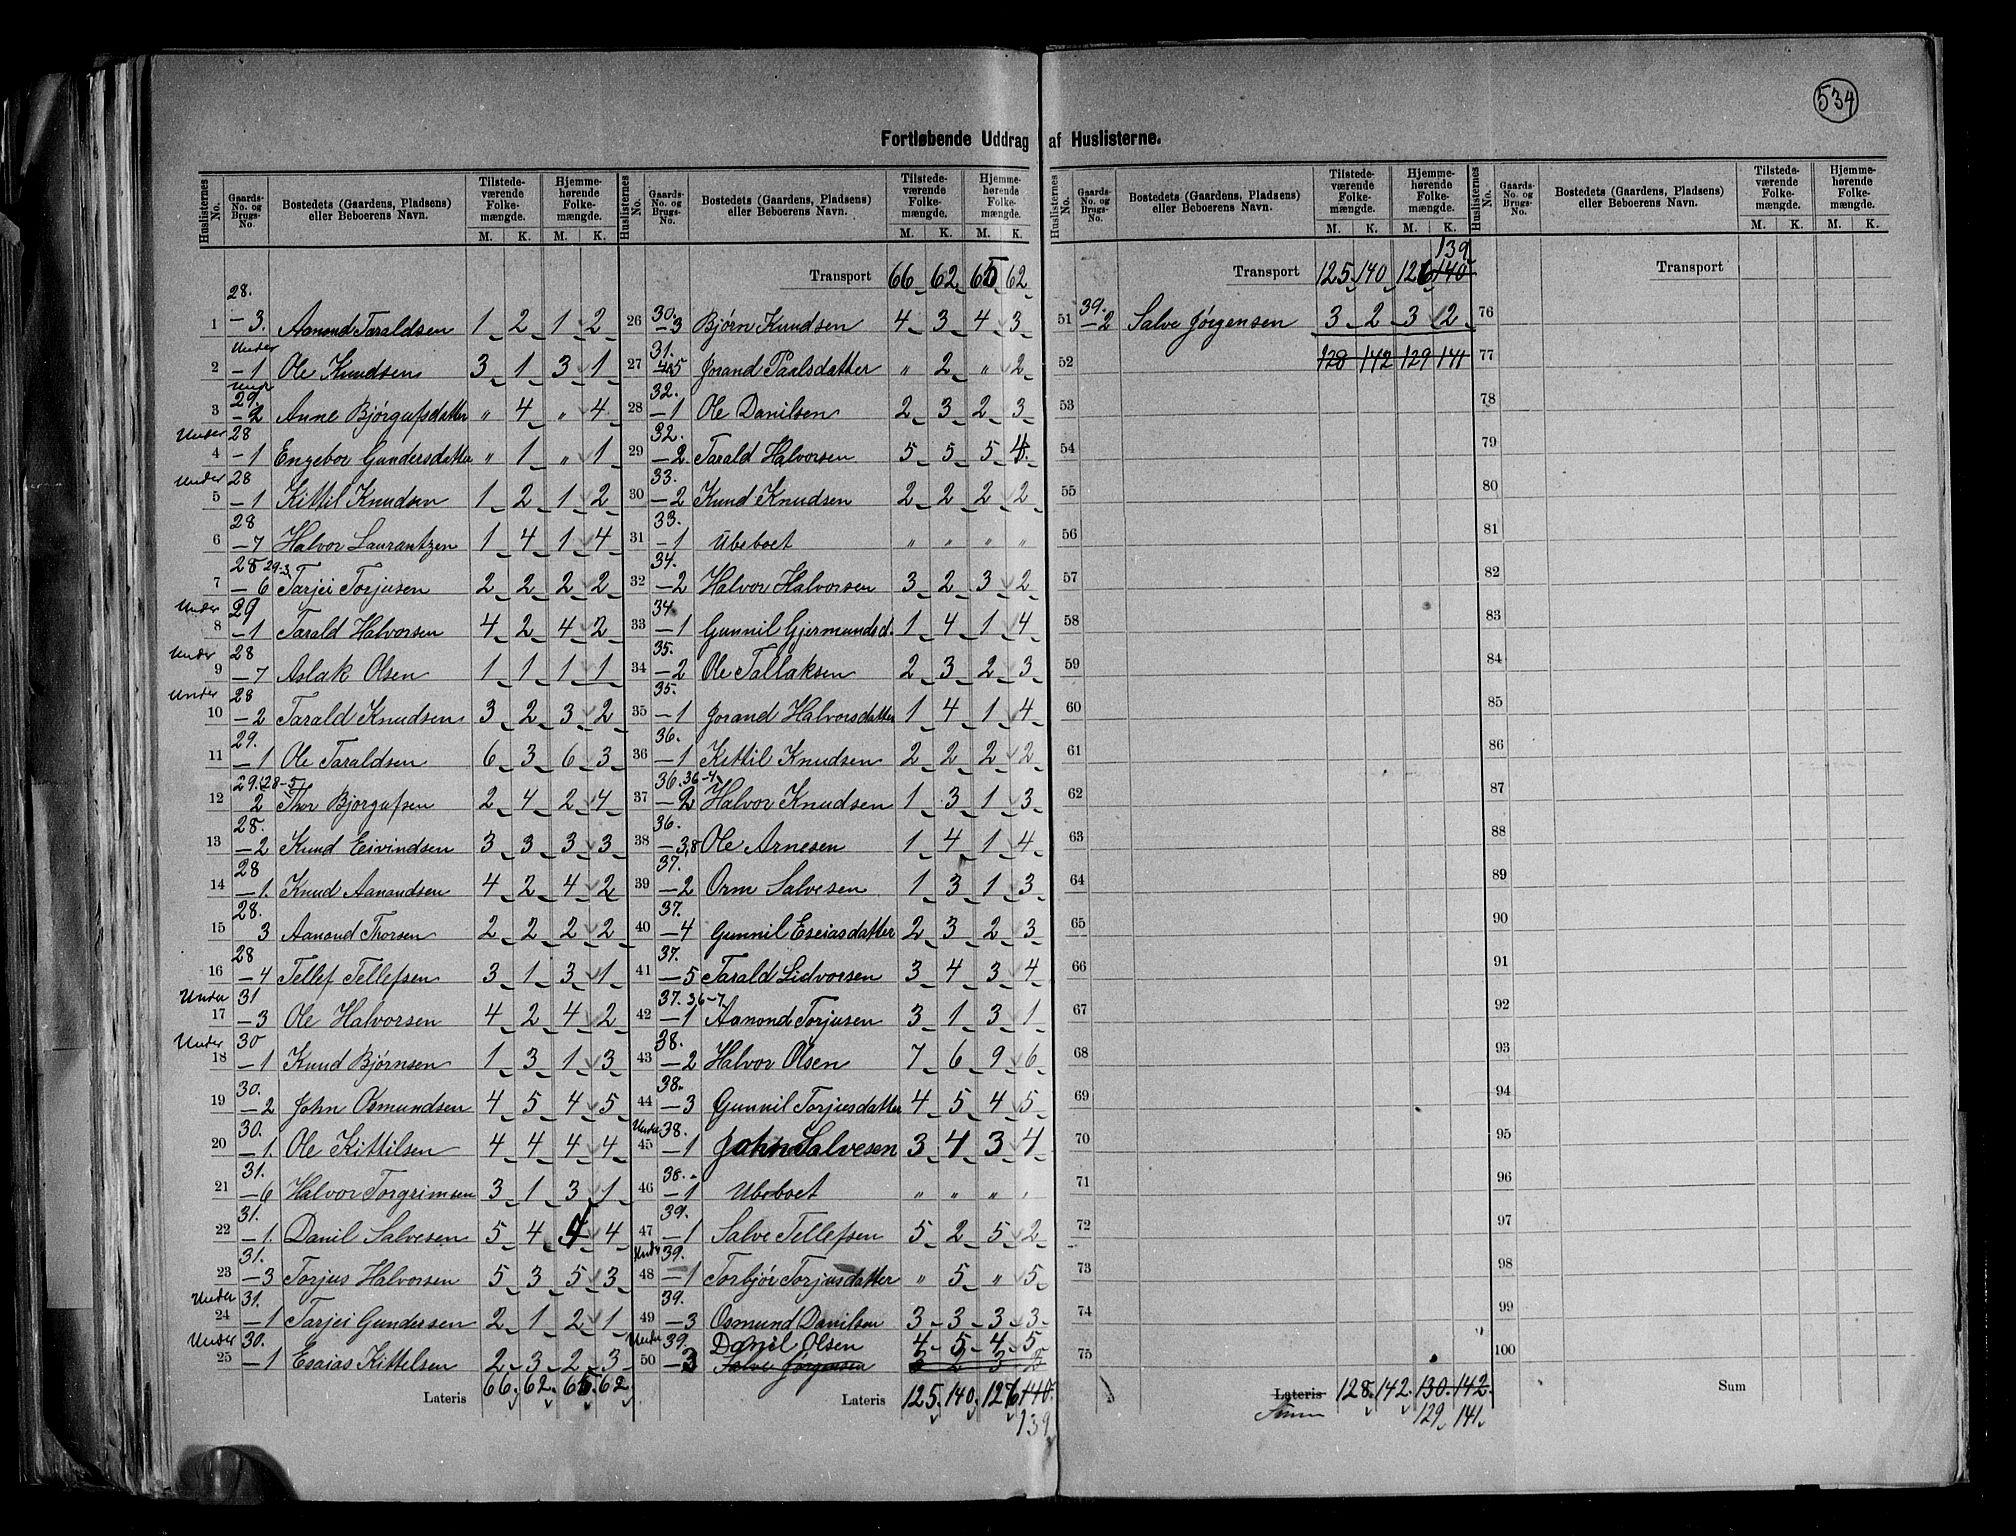 534
Fortløbende Uddrag af Huslisterne.
Huslisternes No. Gaards-No. og Brugs-No. Bostedets (Gaardens, Pladsens) eller Beboerens Navn. Tilstedeværende Folkemængde. M. K. Hjemmehørende Folkemængde. M. K.
28.
1 — 3. Aanond Taraldsen 1 2 1 2
Under
2 — 1 Ole Knudsen 3 1 3 1
Under 29.
3 — 2 Anne Bjørgufsdatter " 4 " 4
Under 28
4 — 1 Engebor Gundersdatter " 1 " 1
Under 28
5 — 1 Kittil Knudsen 1 2 1 2
28
6 — 7 Halvor Laurantzen 1 4 1 4
28 29-3
7 — 6 Tarjei Torjusen 2 2 2 2
Under 29
8 — 1 Tarald Halvorsen 4 2 4 2
Under 28
9 — 7 Aslak Olsen 1 1 1 1
Under 28
10 — 2 Tarald Knudsen 3 2 3 2
29.
11 — 1 Ole Taraldsen 6 3 6 3
29. 28-5
12 2 Thor Bjørgufsen 2 4 2 4
28.
13 — 2 Knud Eivindsen 3 3 3 3
28
14 — 1. Knud Aanondsen 4 2 4 2
28.
15 3 Aanond Thorsen 2 2 2 2
28
16 — 4 Tellef Tellefsen 3 1 3 1
Under 31
17 — 3 Ole Halvorsen 4 2 4 2
Under 30
18 — 1 Knud Bjørnsen 1 3 1 3
30.
19 — 2 John Osmundsen 4 5 4 5
30.
20 — 1. Ole Kittilsen 4 4 4 4
31.
21 — 6 Halvor Torgrimsen 3 1 3 1
31.
22 — 1. Danil Salvesen 5 4 4 4
31.
23 — 3 Torjus Halvorsen 5 3 5 3
Under 31.
24 — 1 Tarjei Gundersen 2 1 2 1
Under 30.
25 — 1 Esaias Kittelsen 2 3 2 3
Lateris 66 62 65 62
Huslisternes No. Gaards-No. og Brugs-No. Bostedets (Gaardens, Pladsens) eller Beboerens Navn. Tilstedeværende Folkemængde. M. K. Hjemmehørende Folkemængde. M. K.
Transport 66 62 65 62
30.
26 — 3 Bjørn Knudsen 4 3 4 3
31.
27 5 Jorand Paalsdatter " 2 " 2
32.
28 — 1 Ole Danilsen 2 3 2 3
32.
29 — 2. Tarald Halvorsen 5 5 5 4
33.
30 — 2 Knud Knudsen 2 2 2 2
33.
31 — 1 Ubeboet " " " "
34.
32 — 2 Halvor Halvorsen 3 2 3 2
34.
33 — 1 Gunnil Gjermundsd. 1 4 1 4
35.
34 — 2 Ole Tallaksen 2 3 2 3
35.
35 — 1 Jorand Halvorsdatter 1 4 1 4
36.
36 — 1 Kittil Knudsen 2 2 2 2
36. 36-4
37 — 2 Halvor Knudsen 1 3 1 3
36.
38 — 3,8 Ole Arnesen 1 4 1 4
37.
39 — 2 Orm Salvesen 1 3 1 3
37.
40 — 4 Gunnil Eseiasdatter 2 3 2 3
37.
41 — 5 Tarald Lidvorsen 3 4 3 4
37. 36-7
42 — 1 Aanond Torjusen 3 1 3 1
38.
43 — 2 Halvor Olsen 7 6 9 6
38.
44 — 3 Gunnil Torjusdatter 4 5 4 5
Under 38.
45 — 1 John Salvesen 3 4 3 4
38.
46 — 1 Ubeboet " " " "
39.
47 — 1 Salve Tellefsen 5 2 5 2
Under 39.
48 — 1 Torbjør Torjusdatter " 5 " 5
39.
49 — 3 Osmund Danilsen 3 3 3 3
Under 39. Daniel Olsen 4 5 4 5
50 — 3 Salve Jørgensen 3 2 3 2
Lateris 125 140 126 140.
139
Huslisternes No. Gaards-No. og Brugs-No. Bostedets (Gaardens, Pladsens) eller Beboerens Navn. Tilstedeværende Folkemængde. M. K. Hjemmehørende Folkemængde. M. K.
139
Transport 125 140 126 140
39.
51 — 2 Salve Jørgensen 3 2 3 2
52 128 142 129 141
53
54
55
56
57
58
59
60
61
62
63
64
65
66
67
68
69
70
71
72
73
74
75
Lateris 128. 142. 130. 142.
Sum 129 141
Huslisternes No. Gaards-No. og Brugs-No. Bostedets (Gaardens, Pladsens) eller Beboerens Navn. Tilstedeværende Folkemængde. M. K. Hjemmehørende Folkemængde. M. K.
Transport
76
77
78
79
80
81
82
83
84
85
86
87
88
89
90
91
92
93
94
95
96
97
98
99
100
Sum